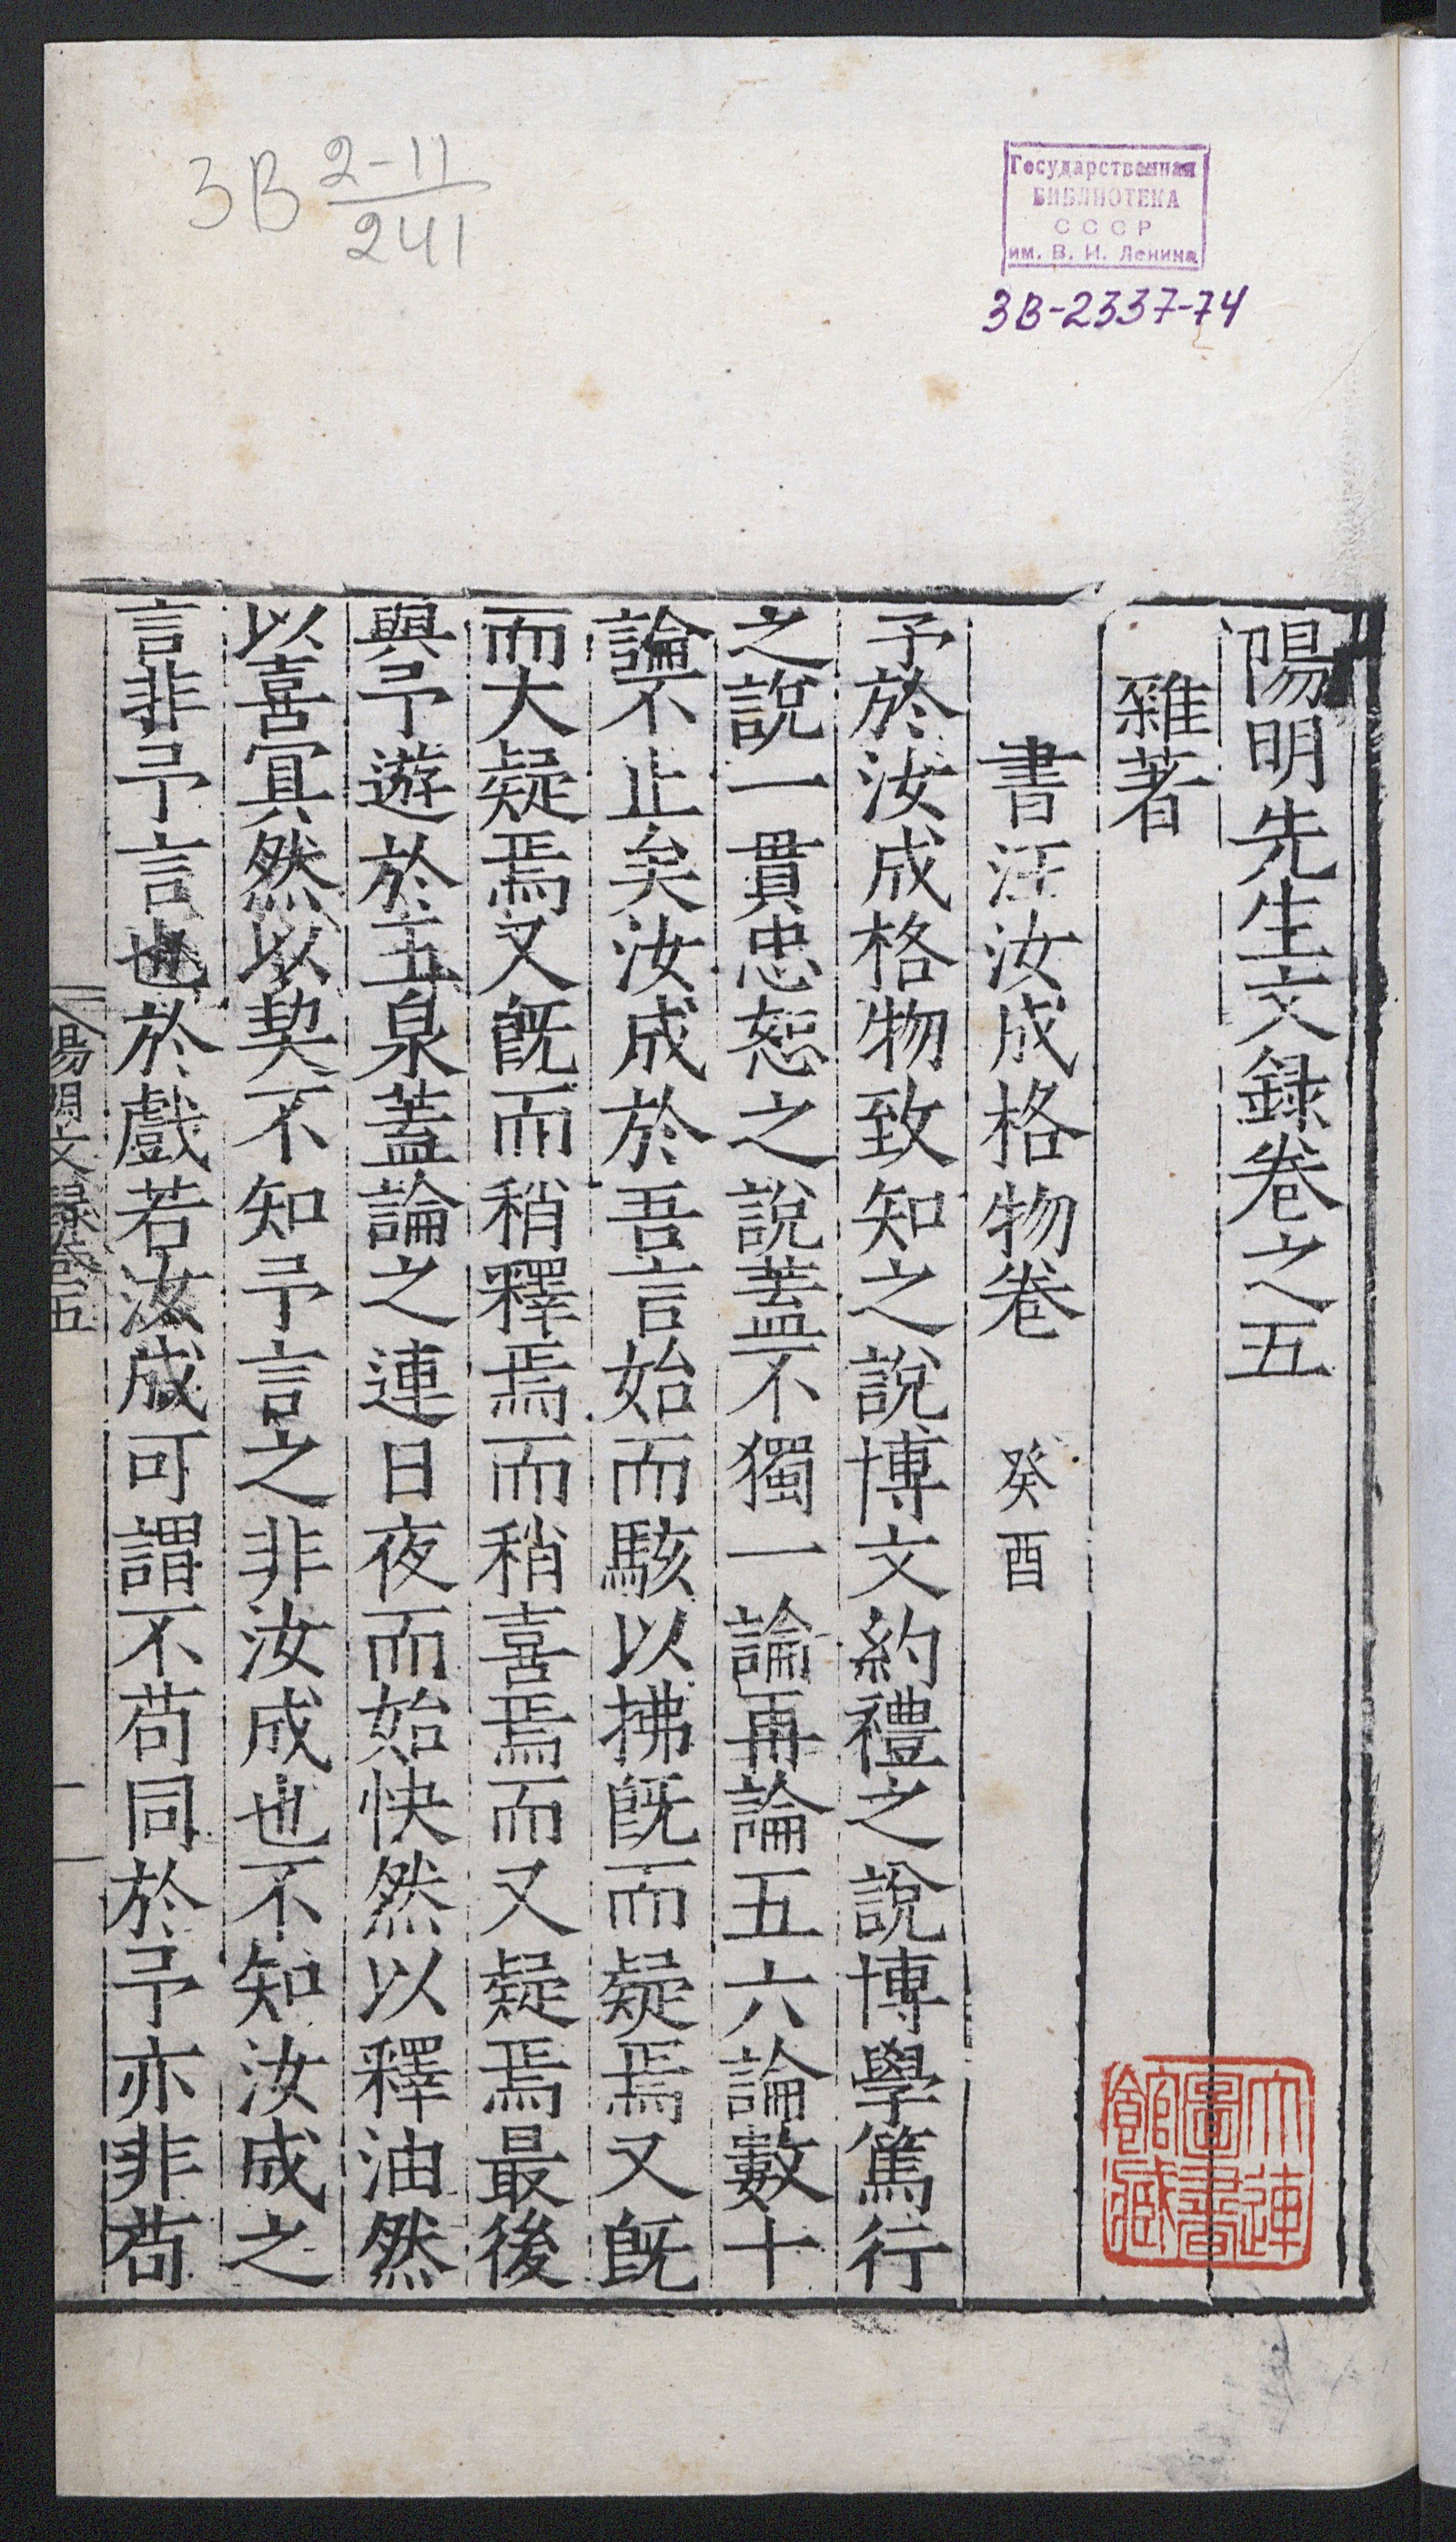 3В 2-11
241
Государственная
БИБЛИОТЕКА
СССР
им. В. И. Ленина
3В-2337-74
陽明先生文録卷之五
雜著
書汪汝成格物卷 癸酉
予於汝成格物致知之說博文約禮之說博學篤行
之說一貫忠恕之說蓋不獨一論再論五六論數十
論不止矣汝成於吾言始而駭以拂既而疑焉又既
而大疑焉又既而稍釋焉而稍喜焉而又疑焉最後
與予遊於玉泉蓋論之連日夜而始快然以釋油然
以喜冥然以契不知予言之非汝成也不知汝成之
言非予言也於戲若汝成可謂不苟同於予亦非苟
陽明文錄卷五
一
大連
圖書
館藏